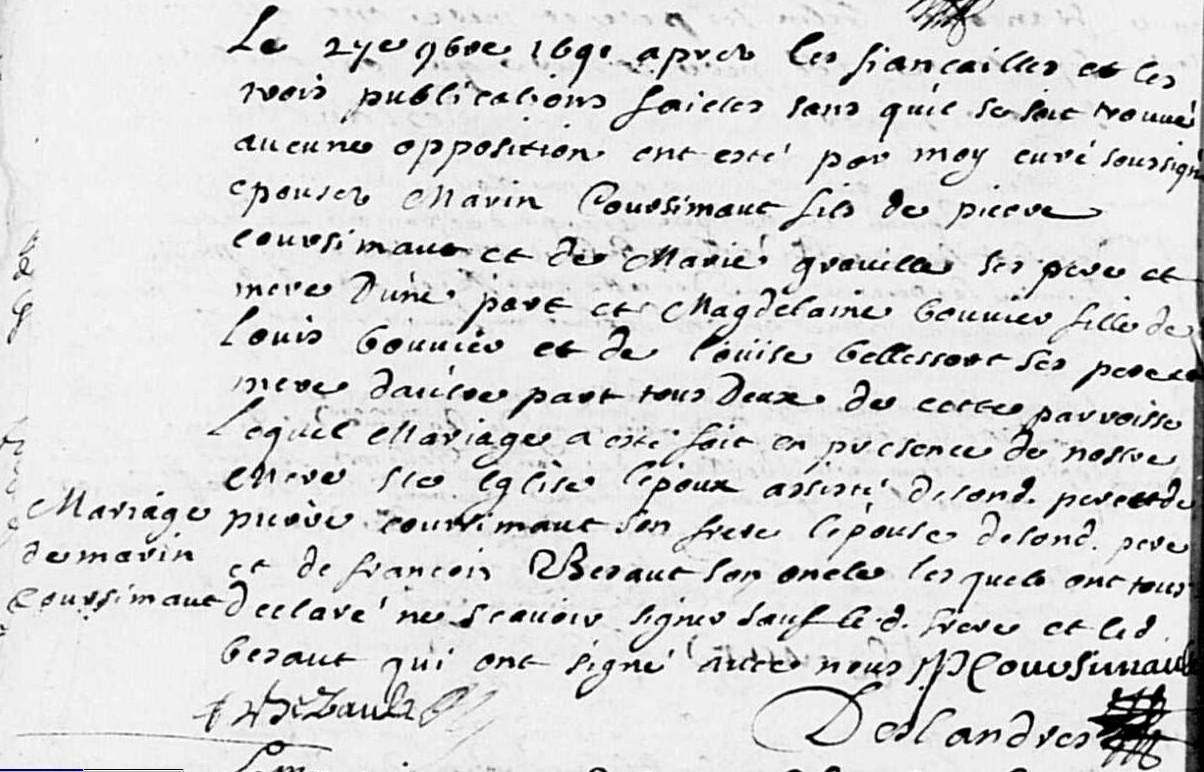 Le 27e 9bre 169. apres les fiancailles et les
trois publications faictes sans qu'il se soit trouvé
aucune opposition ont esté par moy curé soussigné
epousez Marin Coursimaut fils de pierre
coursimaut et de Marie grouille ses pere et
mere d'une part et Magdelaine bouvier fille de
Louis bouvier et de Loüise bellessort ses pere et
mere d'autre part tous deux de cette parroisse
Lequel Mariage a esté fait en presence de nostre
Mere ste Eglise l'epoux assisté de sond. pere et de
pierre coursimaut son frere l'epouse de sond. pere
et de francois Besaut son oncle lesquels ont tous
declaré ne scavoir signer sauf led. frere et led.
besaut qui ont signé avec nous P Coursimault
Mariage
de marin
Coursimaut
f Bezault
Deslandres